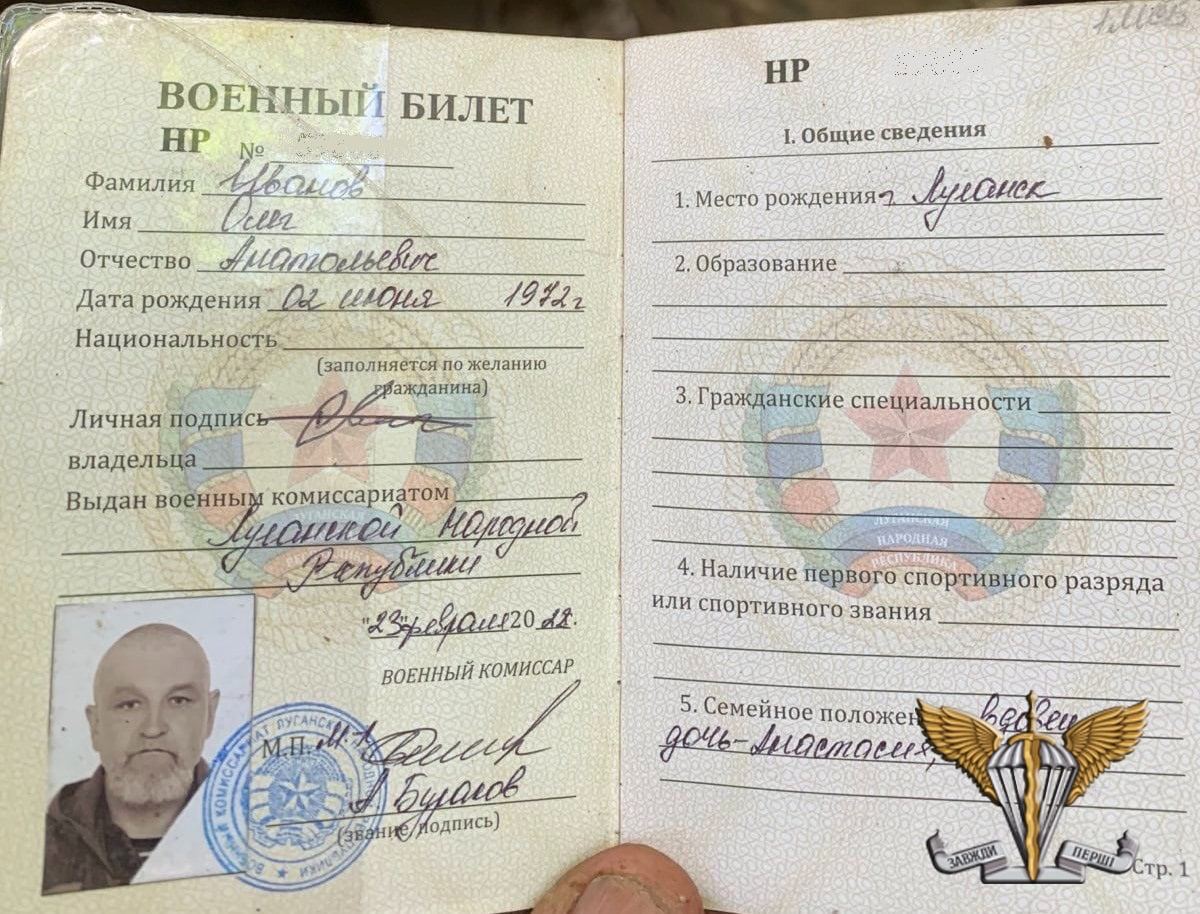 ВОЕННЫЙ БИЛЕТ
НР №
Фамилия Иванов
Имя Олег
Отчество Анатольевич
Дата рождения 02 июня 1972г
Национальность
(заполняется по желанию
гражданина)
Личная подпись
владельца
Выдан военным комиссариатом
Луганской Народной
Республики
"23" февраля 20 22.
ВОЕННЫЙ КОМИССАР
М.П.
А. Бугаков
(звание, подпись)
НР
I. Общие сведения
1. Место рождения г Луганск
2. Образование
3. Гражданские специальности
ЛУГАНСКАЯ
НАРОДНАЯ
РЕСПУБЛИКА
4. Наличие первого спортивного разряда
или спортивного звания
5. Семейное положен вдовец
дочь-Анастасия,
ЗАВЖДИ ПЕРШІ
Стр. 1